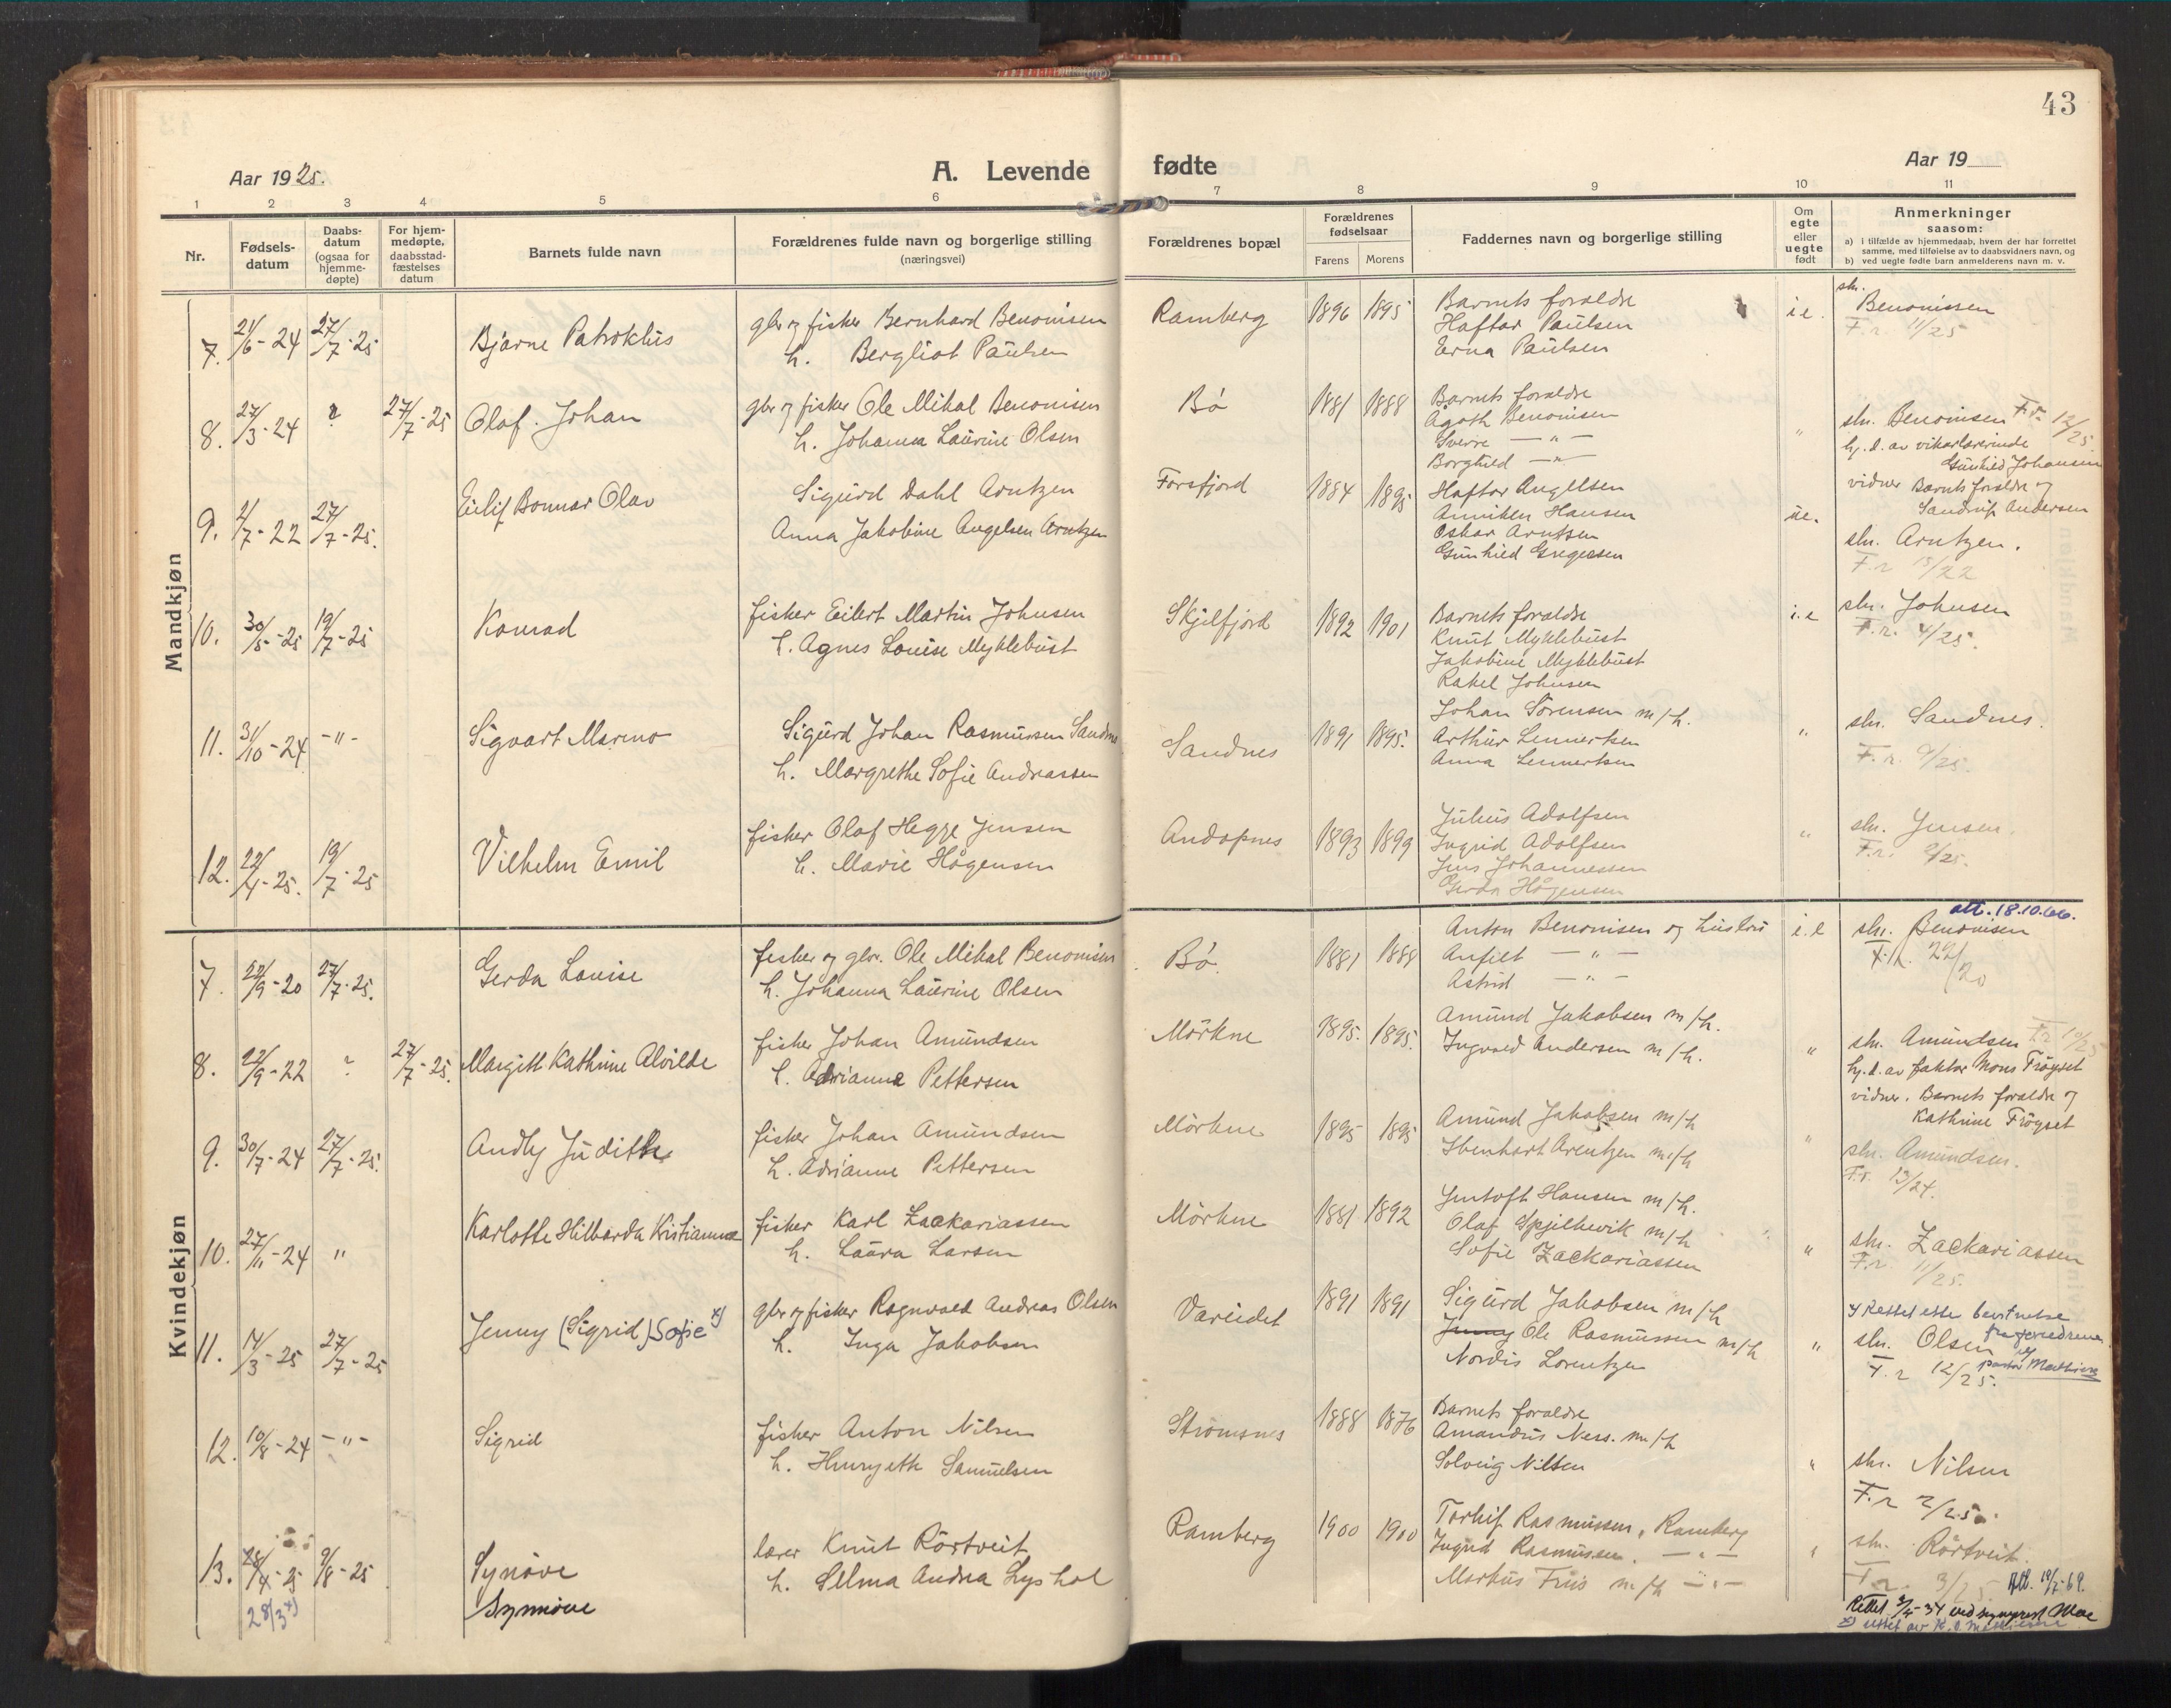 43
Aar 1925.
A. Levende fødte
Aar 19
1 2 3 4 5 6 7 8 9 10 11
Nr.
Fødsels-
datum
Daabs-
datum
(ogsaa for
hjemme-
døpte)
For hjem-
medøpte,
daabsstad-
fæstelses
datum
Barnets fulde navn
Forældrenes fulde navn og borgerlige stilling
(næringsvei)
Forældrenes bopæl
Forældrenes
fødselsaar
Farens Morens
Faddernes navn og borgerlige stilling
Om
egte
eller
uegte
født
Anmerkninger
saasom:
a) i tilfælde av hjemmedaab, hvem der har forrettet
samme, med tilføielse av to daabsvidners navn, og
b) ved uegte fødte barn anmelderens navn m. v.
Mandkjøn
7. 21/6-24 27/7-25 Bjarne Patroklus
gbr og fisker Bernhard Benonisen
h. Bergliot Paulsen
Ramberg 1896 1895
Barnets forældre
Haftor Paulsen
Erna Paulsen
i e.
sln.
Benonissen
F. r. 11/25
8. 27/3-24 ? 27/7-25 Olaf Johan
gbr og fisker Ole Mikal Benonisen
h. Johanna Laurine Olsen
Bø 1881 1888
Barnets forældre
Agoth Benonisen
Sverre — " —
Borghild — " —
"
sln. Benonisen F. r. 12/25
hj. d. av vikarlærerinde
Gunhild Johansen
vidner Barnets forældre og
Sandrup Andersen
9. 2/7-22 27/7-25. Eilif Bonnar Olav
Sigurd Dahl Arntzen
Anna Jakobine Angelsen Arntzen
Forsfjord 1884 1895
Haftor Angelsen
Anniken Hansen
Oskar Arntsen
Gunhild Gregersen
ue.
sln. Arntzen.
F. r 13/22
10. 30/5-25 19/7-25 Konrad
fisker Eilert Martin Johnsen
h. Agnes Louise Myklebust
Skjelfjord 1892 1901
Barnets forældre
Knut Myklebust
Jakobine Myklebust
Rakel Johnsen
i. e
sln. Johnsen
F. r. 4/25.
11. 31/10-24 - " - Sigvart Marino
Sigurd Johan Rasmussen Sandnes
h. Margrethe Sofie Andreassen
Sandnes 1891 1895.
Johan Sørensen m/h.
Arthur Lennertsen
Anna Lennertsen
"
sln. Sandnes.
F. r. 9/25.
12. 22/4-25. 19/7-25 Vilhelm Emil
fisker Olaf Hegge Jensen
h. Marie Hågensen
Andopnes 1893 1899
Julius Adolfsen
Ingrid Adolfsen
Jens Johannessen
Gerda Hågensen
"
sln. Jensen.
F. r. 2/25.
Kvindekjøn
7. 22/9-20 27/7-25. Gerda Louise
fisker og gbr. Ole Mikal Benonisen
h. Johanna Laurine Olsen
Bø. 1881 1888
Anton Benonisen og hustru
Anfiet — " —
Astrid — " —
i. e
att. 18.10.66.
sln. Benonisen
F. r. 22/20
8. 22/9-22 ? 27/7-25. Margitt Kathrine Alvilde
fisker Johan Amundsen
h. Adrianna Pettersen
Mörkne 1895. 1895.
Amund Jakobsen m/h.
Ingvald Andersen m/h.
"
sln. Amundsen F. r 10/25
hj. d. av faktor Mons Frøyset
vidner. Barnets forældre og
Kathrine Frøyset
9. 30/7-24 27/7-25. Andly Judithe
fisker Johan Amundsen
h. Adrianne Pettersen
Mörkne 1895 1895
Amund Jakobsen m/h
Ibenhart Arentzen m/h
"
sln. Amundsen.
F. r. 13/24.
10. 27/11-24 " Karlotte Hilbarda Kristianna
fisker Karl Zackariassen
h. Laura Larsen
Mörkne 1881 1892
Jentoft Hansen m/h.
Olaf Spjelkevik m/h
Sofie Zackariassen
"
sln. Zackariassen
F. r. 11/25.
11. 14/3-25 27/7-25 Jenny (Sigrid) Sofie x)
gbr og fisker Ragnvald Andreas Olsen
h. Inga Jakobsen
Vareidet 1891 1891
Sigurd Jakobsen m/h
Jenny Ole Rasmussen m/h
Nordis Lorentzen
"
sln. Olsen
F. r 12/25.
12. 10/8-24 - " - Sigrid
fisker Anton Nilsen
h. Henryette Samuelsen
Strömsnes 1888 1876
Barnets forældre
Amandus Ness. m/h
Solveig Nilsen
"
sln. Nilsen
F. r 2/25.
13. 28/4-25 9/8-25 Synöve
28/3 x) Synnöve
lærer Knut Rörtveit
h. Selma Andrea Lyshol
Ramberg 1900 1900
Torleif Rasmussen, Ramberg
Ingrid Rasmussen. — " —
Markus Friis m/h — " —
"
sln. Rörtveit.
F. r. 3/25. Att. 19/7-69.
Rettet 3/5-34 ved sogneprest Moe
x) rettet av K. O. Mathiesen